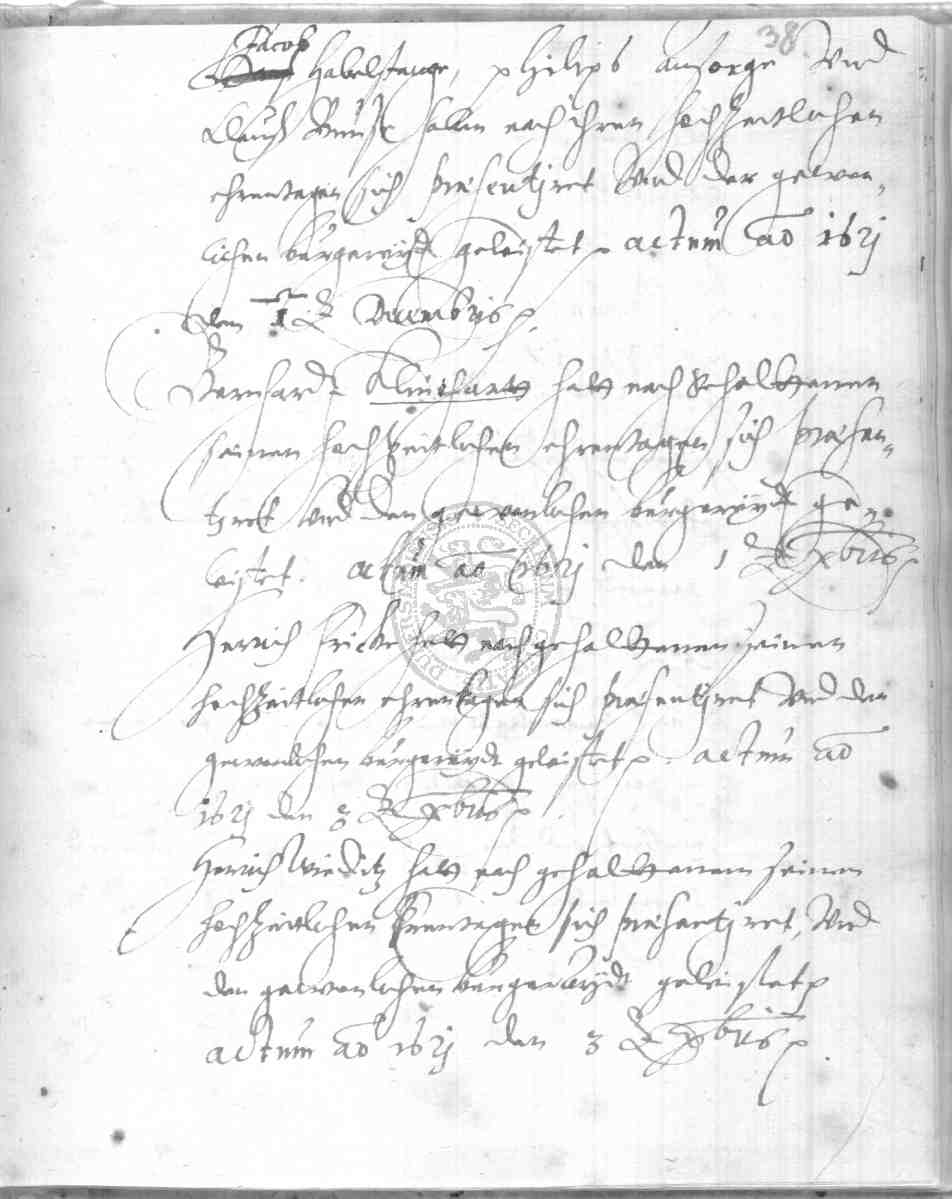 38
Jacob
Habelstange, philips ansorge Vnd
Clauß haben nach ihren hochzeitlichen
ehrentagen sich præsentjret Vnd den gewon,
lichen bürgereydt geleistet p actum ao 1621
den 1 Decembris p.
Bernhardt hatt nach gehalttenen
seinen hochzeitlichen ehrentagen sich præsen,
tjret Vnd den gewonlichen bürgereydt ge,
leistet. actum ao 1621 den 1 xbris p
Henrich Fricke hatt nach gehalttenen seinen
hochzeitlichen ehrentagen sich præsentjret Vnd den
gewonlichen bürgereydt geleistet p actum ao
1621 den 3 xbris p
Henrich hatt nach gehalttenen seinen
hochzeitlichen sich præsentjret, Vnd
den gewonlichen bürgereydt geleistet p
actum ao 1621 den 3 xbris p.